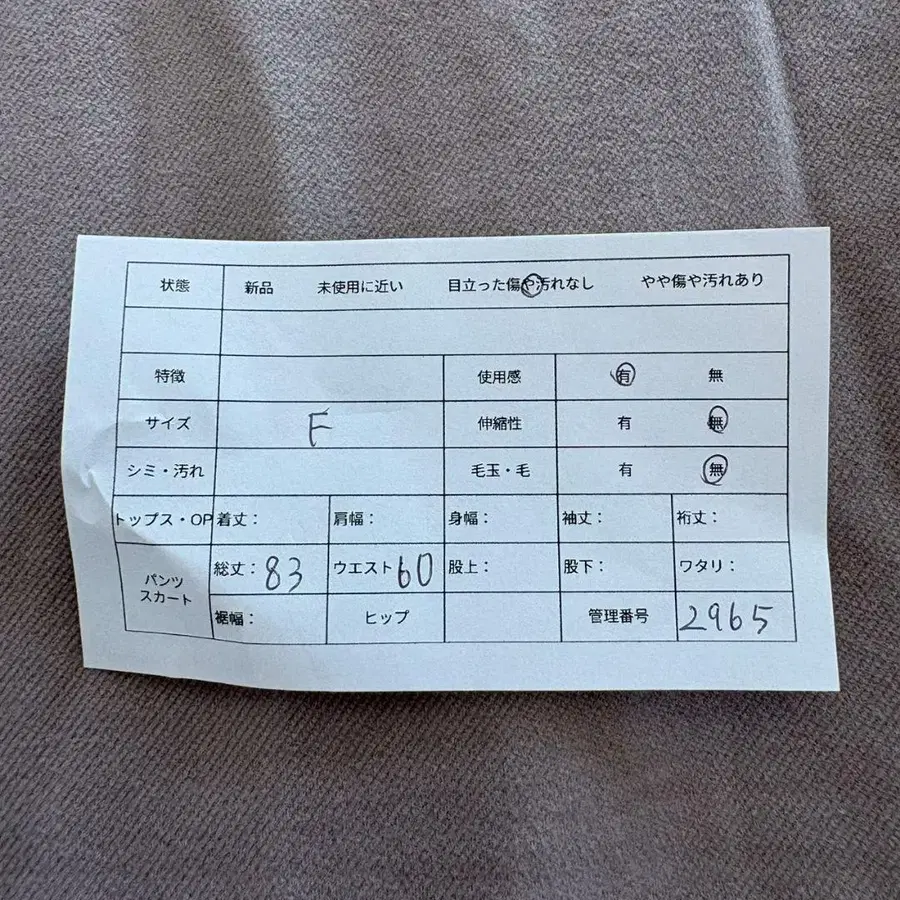 状態 新品 未使用に近い 目立った傷や汚れなし やや傷や汚れあり
特徴 使用感 有 無
サイズ F 伸縮性 有 無
シミ・汚れ 毛玉・毛 有 無
トップス・OP 着丈： 肩幅： 身幅： 袖丈： 裄丈：
パンツ
スカート
総丈：83 ウエスト60 股上： 股下： ワタリ：
裾幅： ヒップ 管理番号 2965